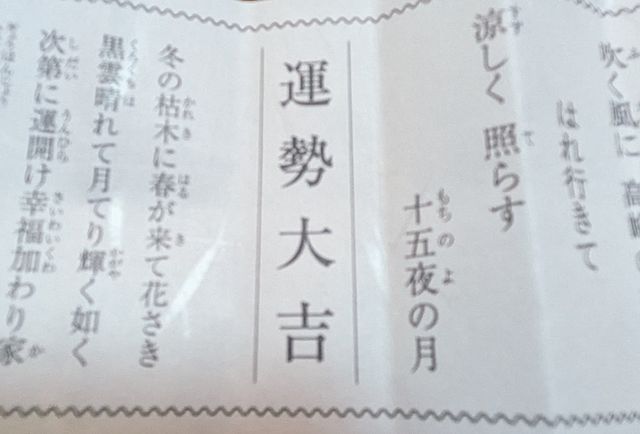 吹く風に 高
はれ行きて
涼しく 照らす
十五夜の月
運勢大吉
冬の枯木に春が来て花さき
黒雲晴れて月てり輝く如く
次第に運開け幸福加わり家